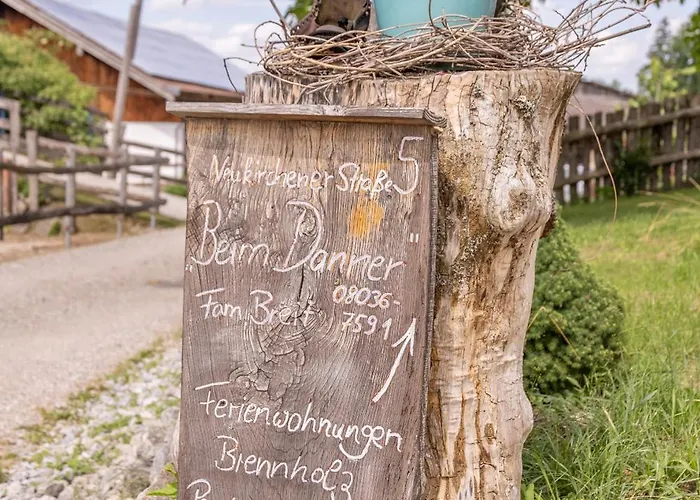 Neukirchener Straße 5
„Beim Danner"
Fam. Breit 08036-
7591
Ferienwohnungen
Brennholz